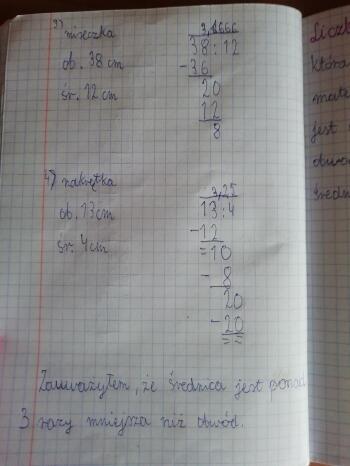 3) miseczka
ob. 38 cm
śr. 12 cm
3,1666
38 : 12
-36
20
12
8
4) nakrętka
ob. 13 cm
śr. 4 cm
3,25
13 : 4
-12
=10
- 8
20
-20
==
Zauważyłem, że średnica jest ponad
3 razy mniejsza niż obwód.
Liczb
która
mate
jest
obwo
średni